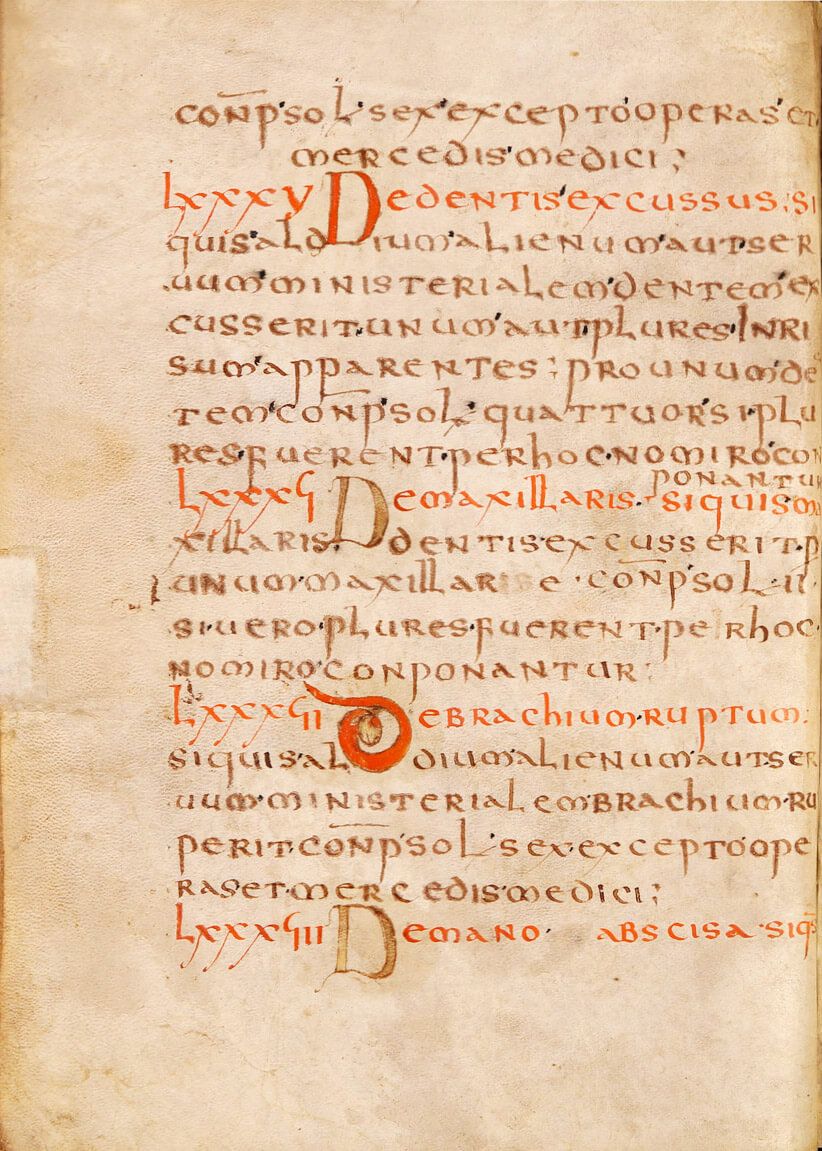 con̄p·sol·sex·exceptooperas·et
mercedis·medici;
lxxxv Dedentis·excussus; si
quis·ald Dium·alienum·aut·ser
uum·ministerialem·dentem·ex
cusserit·unum·aut·plures·Inri
sum·apparentes; pro unum·de
tem·con̄p·sol·quattuor·si·plu
res·fuerent·perhoc·nomiro·con
ponantur
lxxxỼI Demaxillaris· siquis ma
xillaris· dentis·excusserit·p
unum·maxillare·con̄p·sol·ii·
si·uero·plures·fuerent·perhoc·
nomiro·conponantur;
lxxxỼII Debrachium·ruptum;
siquis·aldium·alienum·aut·ser
uum·ministerialem·brachium·ru
perit·con̄p·sol·sex·exceptoope
ras·et·mercedis·medici;
lxxxỼIII Demano· abscisa·siq̄s